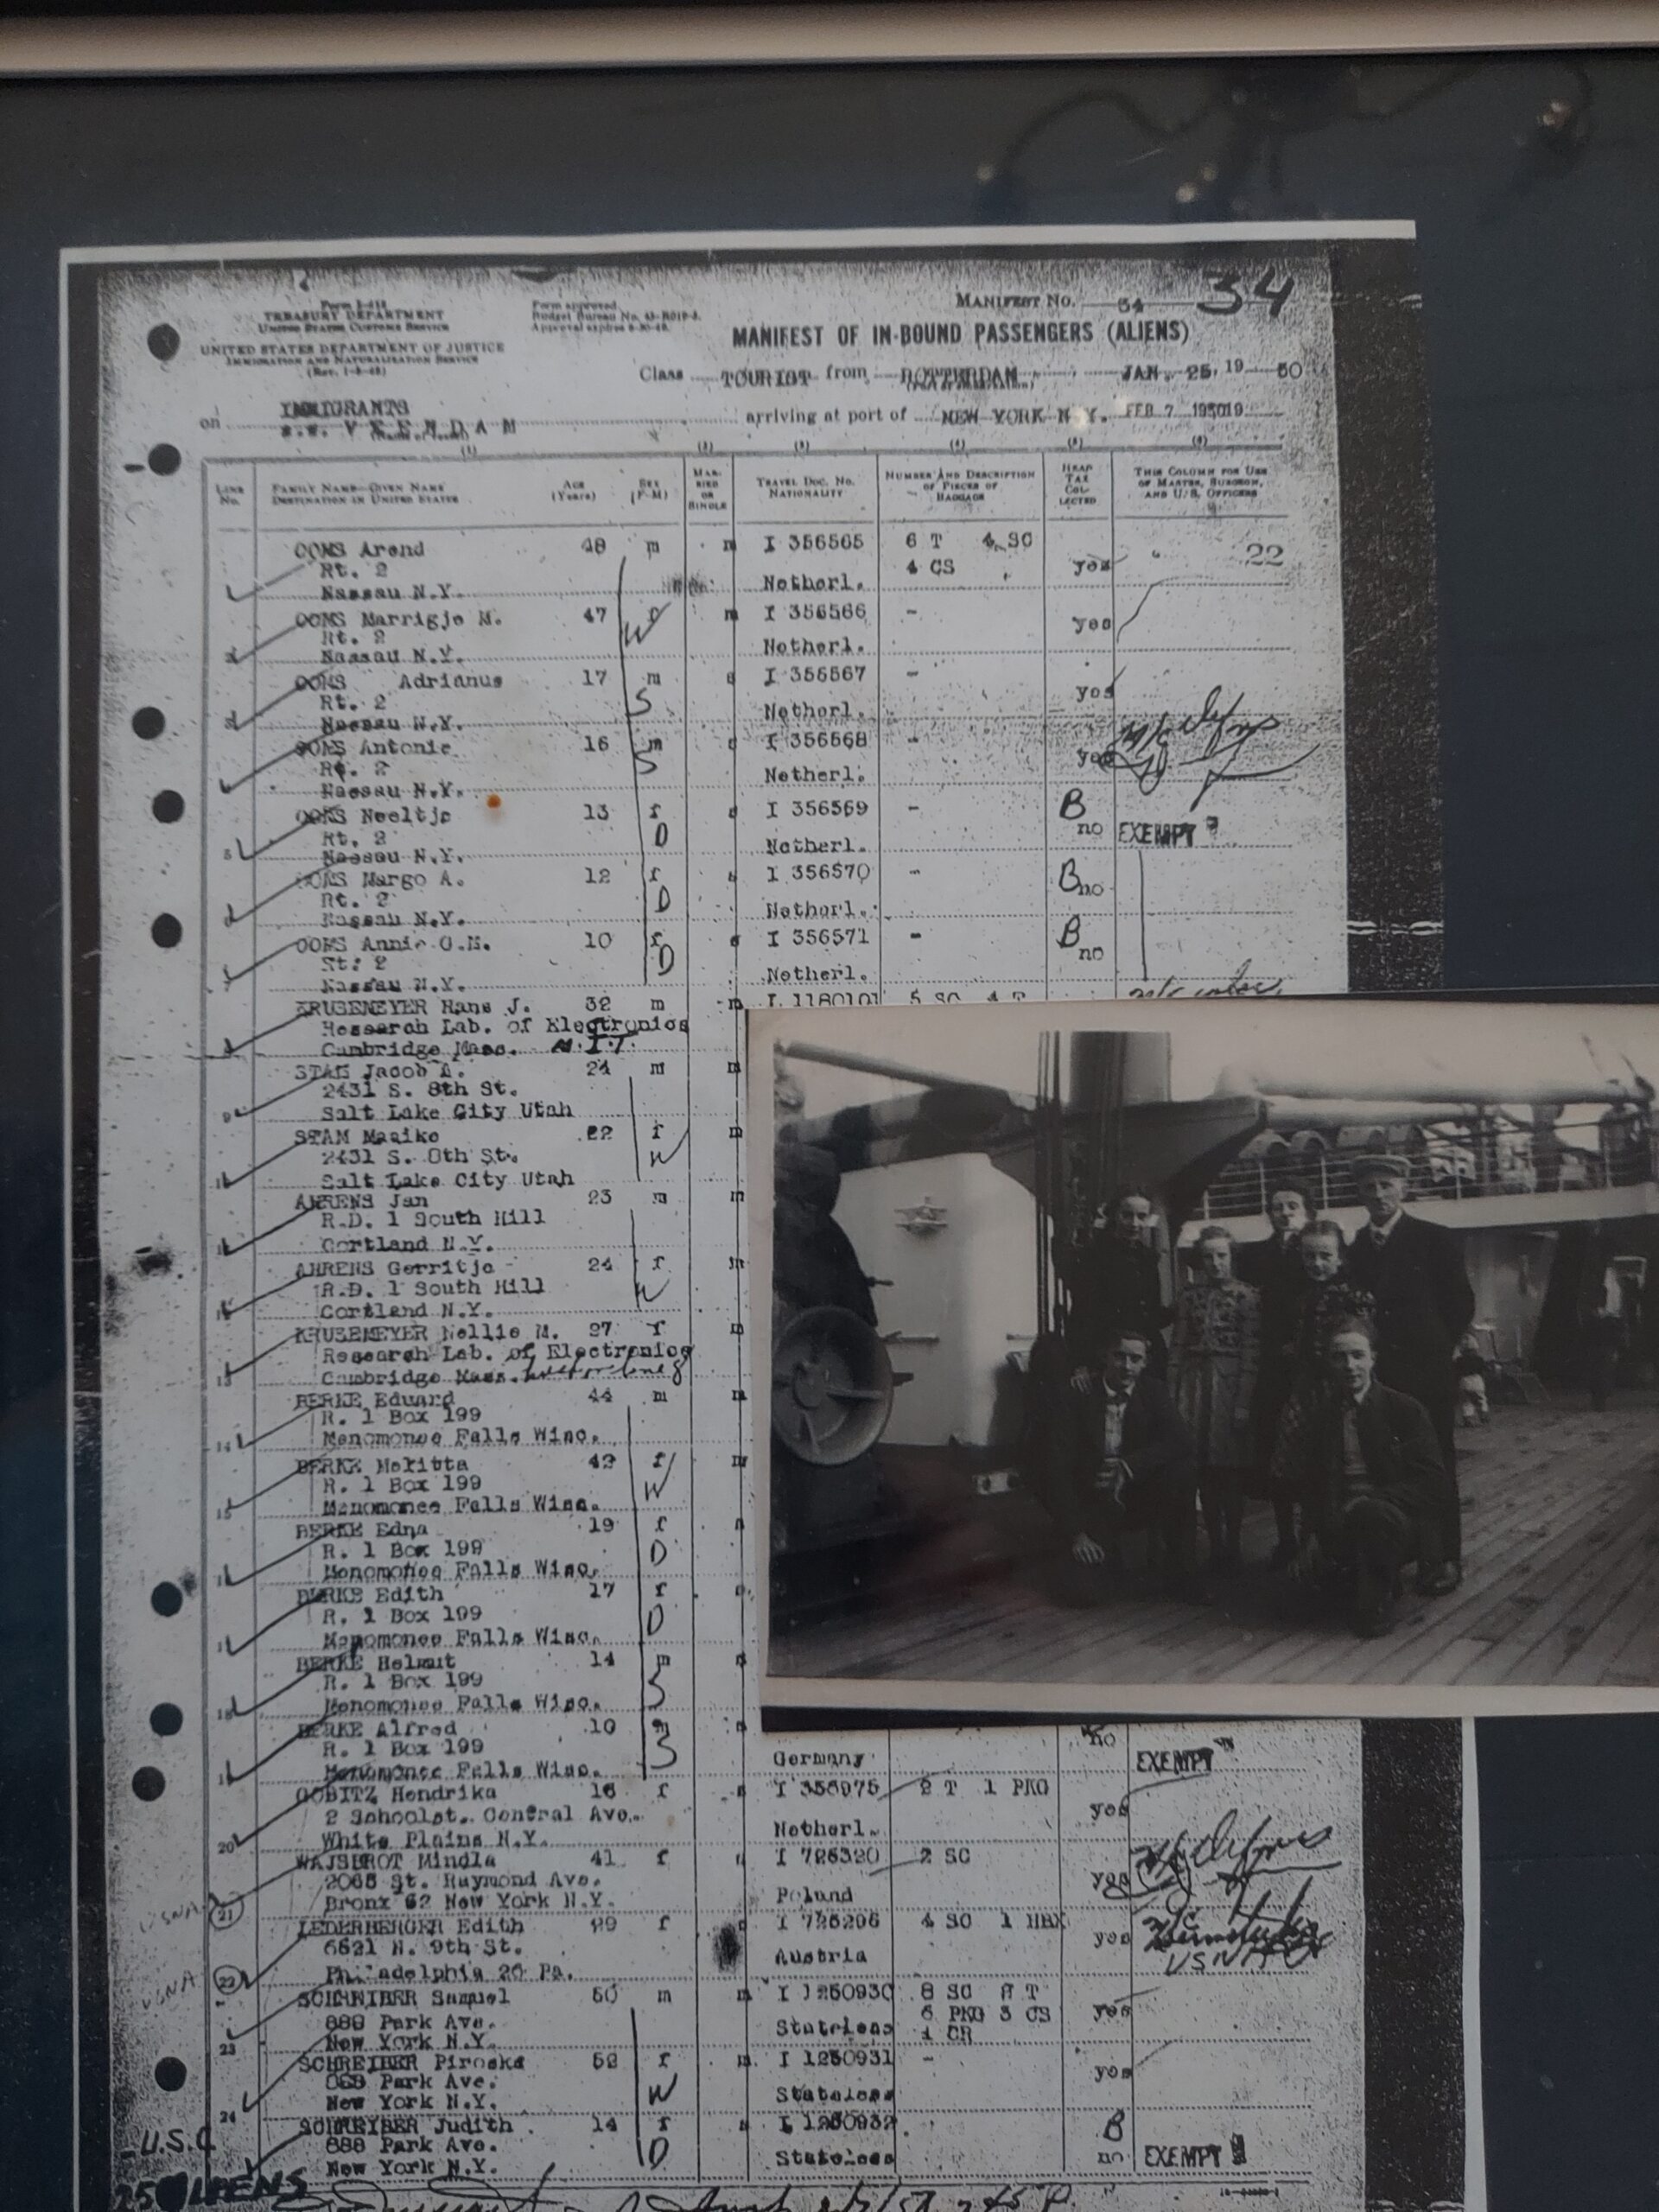 Form I-418
TREASURY DEPARTMENT
UNITED STATES CUSTOMS SERVICE
UNITED STATES DEPARTMENT OF JUSTICE
IMMIGRATION AND NATURALIZATION SERVICE
Form approved.
Budget Bureau No.
Approval expires
MANIFEST NO. 34 34
MANIFEST OF IN-BOUND PASSENGERS (ALIENS)
Class TOURIST from ROTTERDAM, JAN. 25, 19 50
IMMIGRANTS
on s.s. VEENDAM arriving at port of NEW YORK N.Y. FEB 7 195019
(1) (2) (3) (4) (5) (6)
LINE No. FAMILY NAME—GIVEN NAME DESTINATION IN UNITED STATES AGE (Years) SEX (F-M) MARRIED OR SINGLE TRAVEL DOC. NO. NATIONALITY NUMBER AND DESCRIPTION OF PIECES OF BAGGAGE HEAD TAX COLLECTED THIS COLUMN FOR USE OF MASTER, SURGEON, AND U.S. OFFICERS
OOMS Arend 48 m m I 356565 6 T 4 SC
Rt. 2 4 CS yes 22
Nassau N.Y. Netherl.
OOMS Marrigje M. 47 f m I 356566 -
Rt. 2 W yes
Nassau N.Y. Netherl.
OOMS Adrianus 17 m s I 356567 -
Rt. 2 S yes
Nassau N.Y. Netherl.
OOMS Antonie 16 m s I 356568 -
Rt. 2 S yes
Nassau N.Y. Netherl.
OOMS Neeltje 13 f s I 356569 - B
Rt. 2 D no EXEMPT
5 Nassau N.Y. Netherl.
OOMS Margo A. 12 f s I 356570 - B no
Rt. 2 D
Nassau N.Y. Netherl.
OOMS Annie G.M. 10 f s I 356571 - B
St: 2 D no
Nassau N.Y. Netherl.
KRUSEMEYER Hans J. 32 m m I 1180101 5 SC 4 T
Research Lab. of Electronics
Cambridge Mass. M.I.T.
STAM Jacob A. 24 m m
2431 S. 8th St.
9 Salt Lake City Utah
STAM Maaike 22 f m
2431 S. 8th St. W
Salt Lake City Utah
AHRENS Jan 23 m m
R.D. 1 South Hill
Cortland N.Y.
AHRENS Gerritje 24 f m
R.D. 1 South Hill W
Cortland N.Y.
KRUSEMEYER Nellie M. 27 f m
Research Lab. of Electronics
13 Cambridge Mass.
BERKE Eduard 44 m m
R. 1 Box 199
14 Menomonee Falls Wisc.
BERKE Melitta 42 f m
R. 1 Box 199 W
15 Menomonee Falls Wisc.
BERKE Edna 19 f s
R. 1 Box 199 D
Menomonee Falls Wisc.
BERKE Edith 17 f s
R. 1 Box 199 D
Menomonee Falls Wisc.
BERKE Helmut 14 m s
R. 1 Box 199 S
18 Menomonee Falls Wisc.
BERKE Alfred 10 m s no
R. 1 Box 199 S Germany EXEMPT
Menomonee Falls Wisc.
GOBITZ Hendrika 16 f s I 356975 2 T 1 PKG
2 Schoolst. Central Ave. yes
20 White Plains N.Y. Netherl.
WAJSBROT Mindla 41 f I 726320 2 SC
2065 St. Raymond Ave. yes
21 Bronx 62 New York N.Y. Poland
USNA
LEDERBERGER Edith 29 f I 726206 4 SC 1 HBX
6621 N. 9th St. yes
22 Philadelphia 26 Pa. Austria USNA
USNA
SCHREIBER Samuel 50 m m I 1250930 8 SC 8 T
888 Park Ave. 6 PKG 3 CS yes
23 New York N.Y. Stateless 1 CR
SCHREIBER Piroska 52 f m I 1250931 -
888 Park Ave. W yes
24 New York N.Y. Stateless
SCHREIBER Judith 14 f s I 1250932 B
888 Park Ave. D no EXEMPT
New York N.Y. Stateless
U.S.C
25 ALIENS